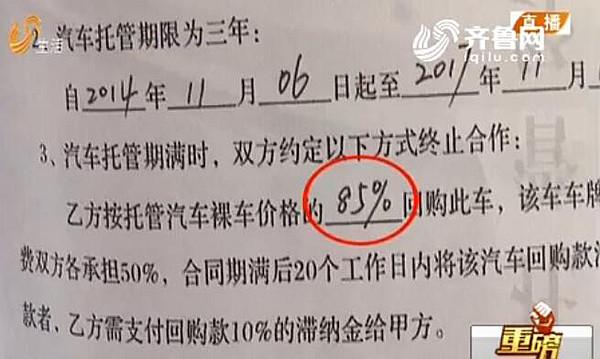 直播
生活
齐鲁网
qilu.com
2、汽车托管期限为三年：
自2014年11月06日起至2017年11月
3、汽车托管期满时，双方约定以下方式终止合作：
乙方按托管汽车裸车价格的85%回购此车，该车车牌
费双方各承担50%，合同期满后20个工作日内将该汽车回购款汇
款者、乙方需支付回购款10%的滞纳金给甲方。
重磅